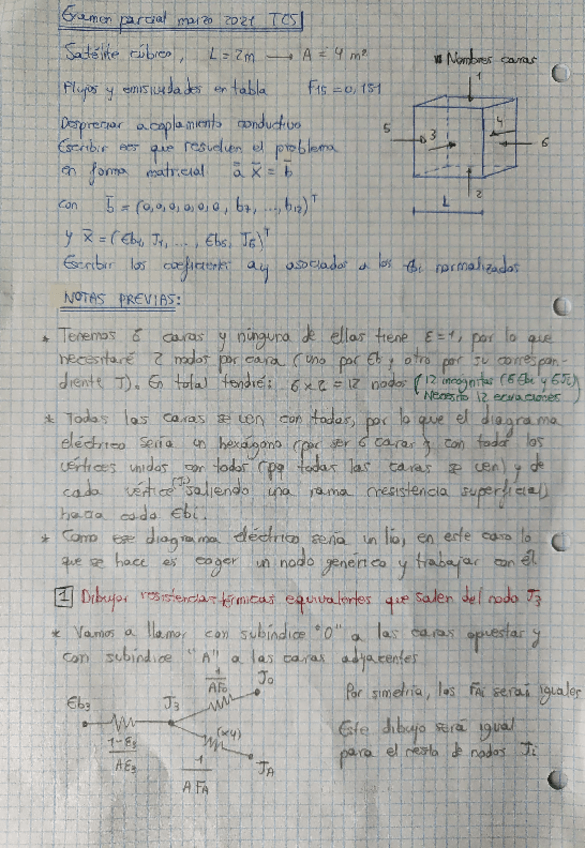 Examen parcial marzo 2021 TCS
Satélite cúbico, L = 2m → A = 4 m²
Nombres caras
Flujos y emisividades en tabla F15 = 0,151
Despreciar acoplamiento conductivo
Escribir ecs que resuelven el problema
en forma matricial a̿ x̄ = b̄
con b̄ = (0,0,0,0,0,0, b7, ..., b12)ᵀ
y x̄ = (Eb1, J1, ..., Eb6, J6)ᵀ
Escribir los coeficientes aij asociados a los Ebi normalizados
1
5
3
4
6
2
L
NOTAS PREVIAS:
* Tenemos 6 caras y ninguna de ellas tiene ε=1, por lo que
necesitaré 2 nodos por cara (uno por Eb y otro por su correspon-
diente J). En total tendré: 6 x 2 = 12 nodos (12 incógnitas (6 Ebi y 6 Ji)
Necesito 12 ecuaciones
* Todas las caras se ven con todas, por lo que el diagrama
eléctrico sería un hexágono (por ser 6 caras) con todos los
vértices unidos con todos (pq todas las caras se ven) y de
cada vértice (Ji) saliendo una rama (resistencia superficial)
hacia cada Ebi.
* Como ese diagrama eléctrico sería un lío, en este caso lo
que se hace es coger un nodo genérico y trabajar con él
1 Dibujar resistencias térmicas equivalentes que salen del nodo J3
* Vamos a llamar con subíndice "O" a las caras opuestas y
con subíndice "A" a las caras adyacentes
1/AFo
Jo
Por simetría, los FAi serán iguales
Eb3 J3
(x4)
Este dibujo será igual
para el resto de nodos Ji
1-ε3/Aε3
1/AFA
JA